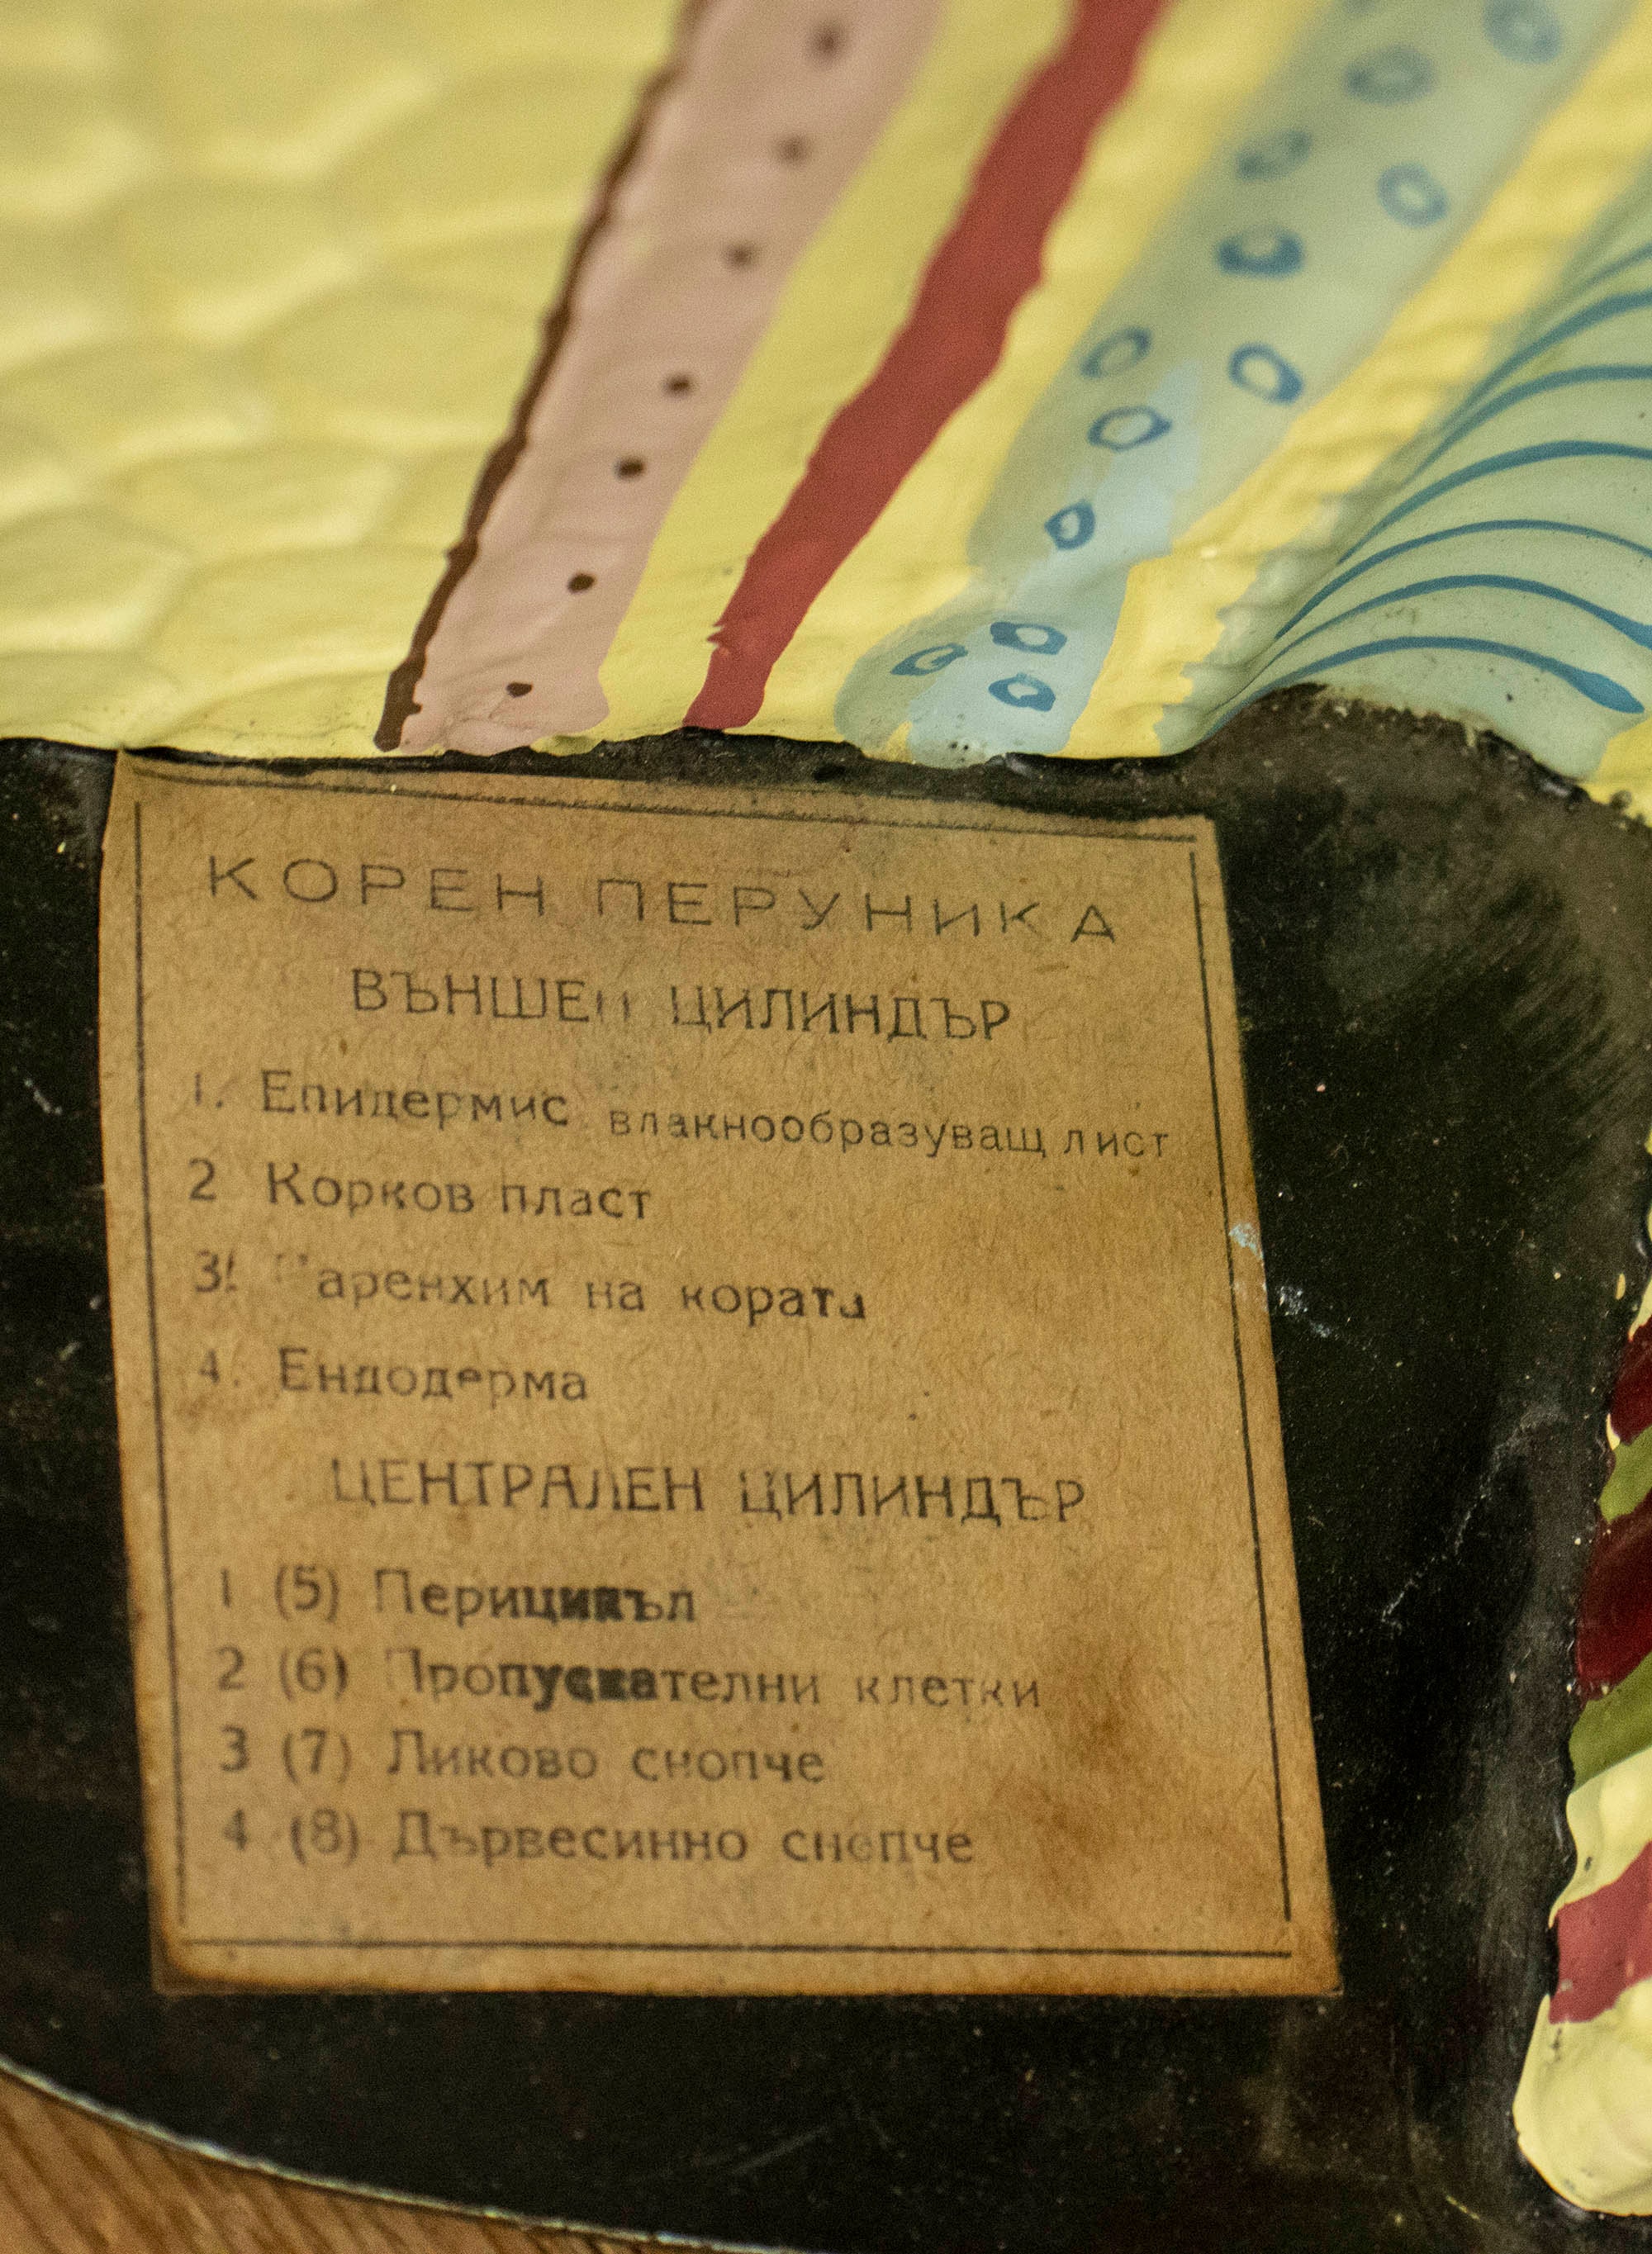 КОРЕН ПЕРУНИКА
ВЪНШЕН ЦИЛИНДЪР
1. Епидермис влакнообразуващ лист
2 Корков пласт
3. Паренхим на кората
4. Ендодерма
ЦЕНТРАЛЕН ЦИЛИНДЪР
1 (5) Перицикъл
2 (6) Пропускателни клетки
3 (7) Ликово снопче
4 (8) Дървесинно снопче